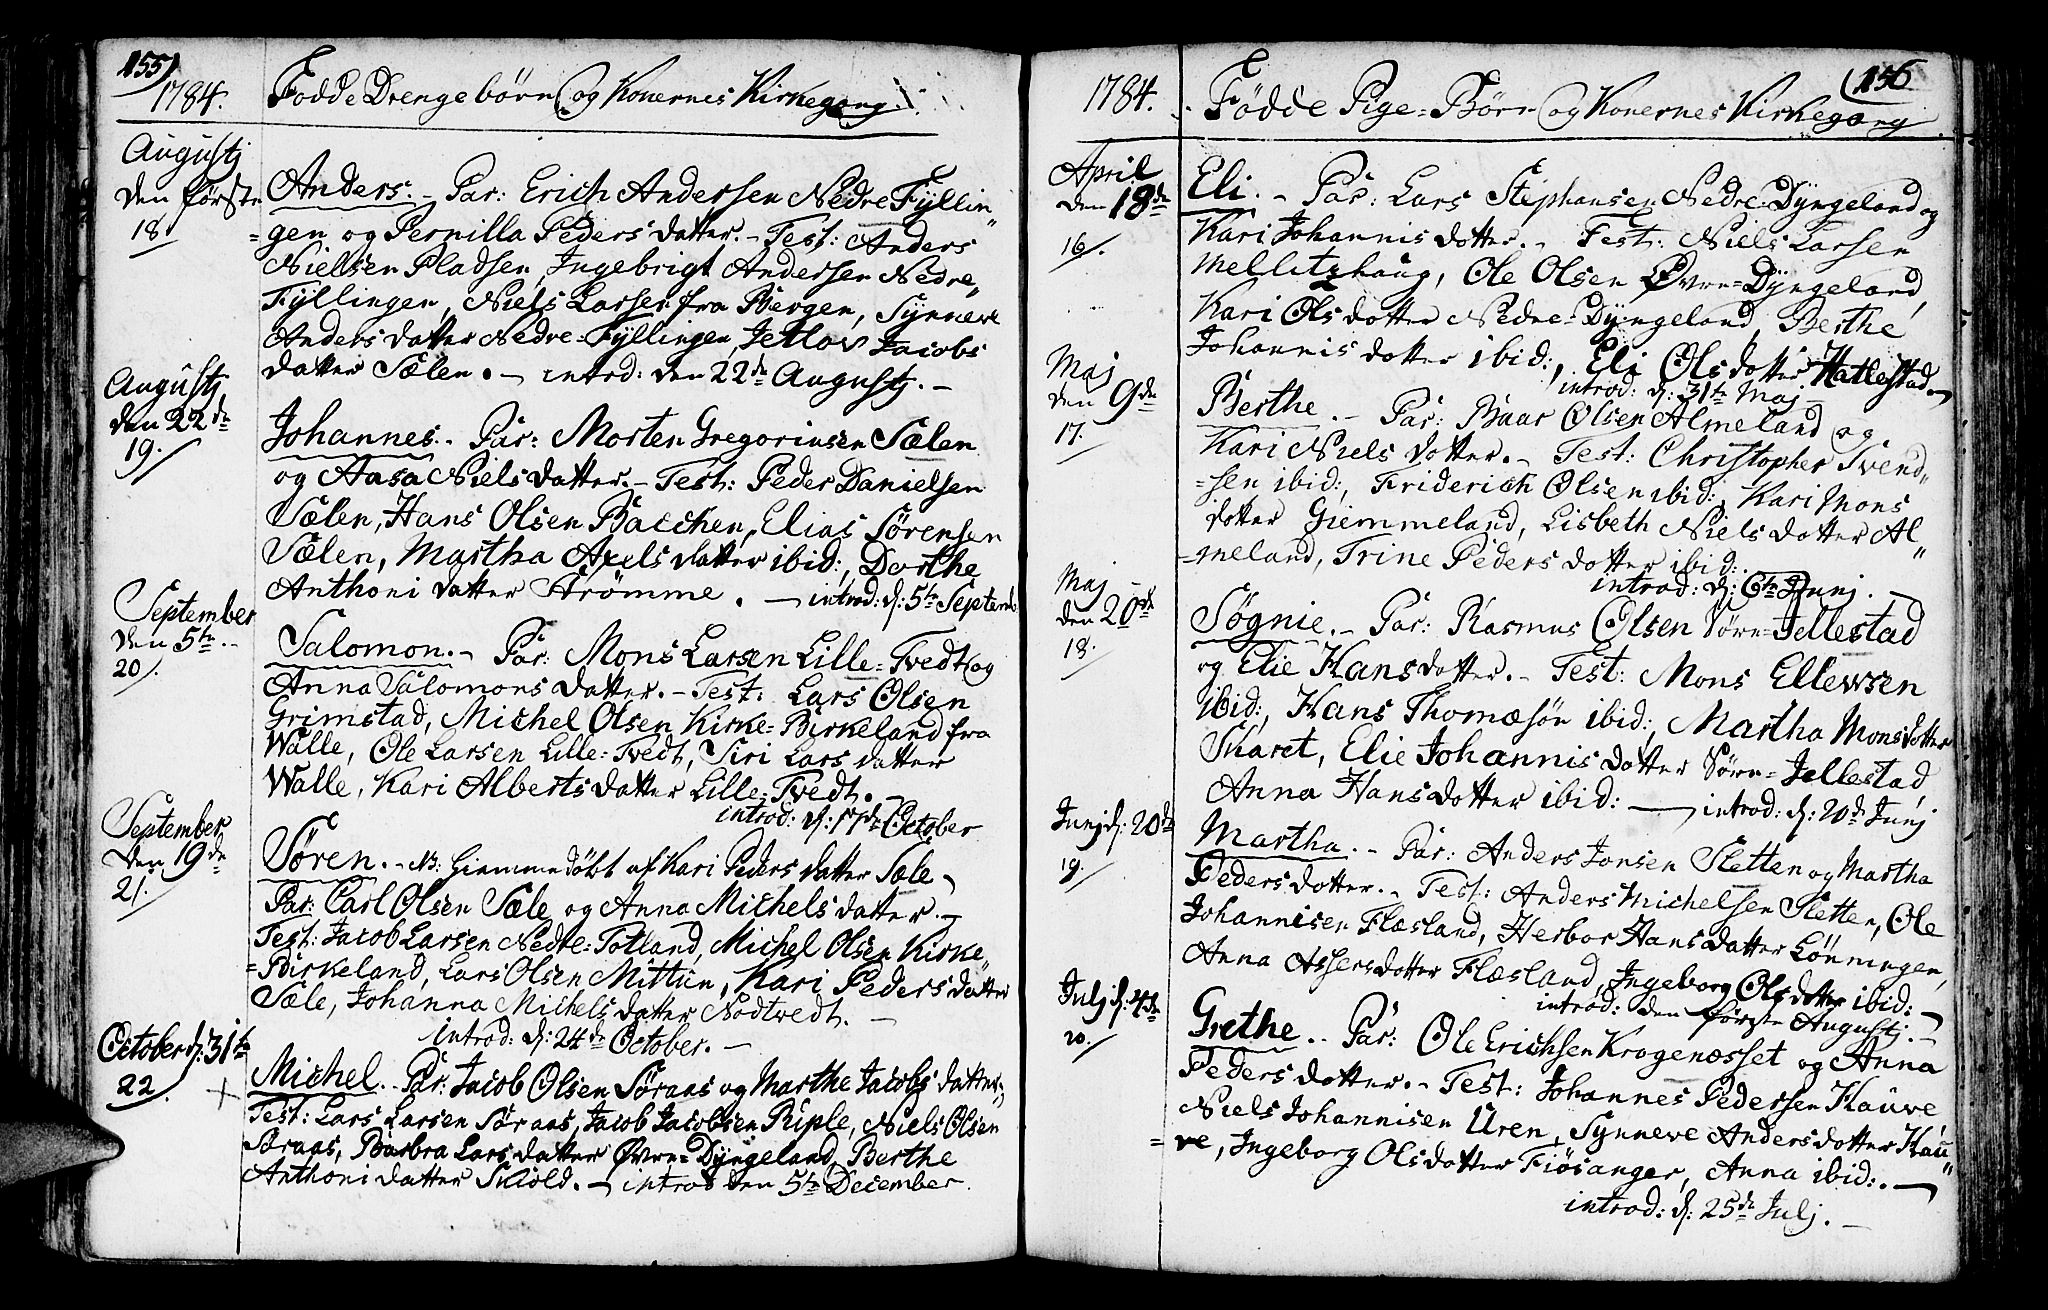 155)
1784. Fødde Drengebørn og Konernes Kirkegang.
Augustj
den første
18
Anders. - Par: Erich Andersen Nedre Fyllin„
=gen og Pernilla Peders datter. - Test: Anders
Nielsen Pladsen, Ingebrigt Andersen Nedre„
Fyllingen, Niels Larsen fra Bergen, Synneve
Anders datter Nedre=Fyllingen, Jetlov Jacobs
datter Sælen. - introd: den 22de Augustj. -
Augustj
den 22de
19.
Johannes. - Par: Morten Gregoriusen Sælen
og Aasa Niels datter. - Test: Peder Danielsen
Sælen, Hans Olsen Bacchen, Elias Sørensen
Sælen, Martha Axels datter ibid:, Dorthe
Anthoni datter Strømme. - introd: d: 5te Septemb
September
den 5te. -
20.
Salomon. - Par: Mons Larsen Lille=Tvedt og
Anna Salomons datter. - Test: Lars Olsen
Grimstad, Michel Olsen Kirke=Birkeland fra
Walle, Ole Larsen Lille=Tvedt, Siri Lars datter
Walle, Kari Alberts datter Lille=Tvedt. -
introd: d: 17de October
September
den 19de
21.
Søren. - NB: Giemmedøbt af Kari Peders datter Sæle -
Par: Carl Olsen Sæle og Anna Michels datter. -
Test: Jacob Larsen Nedre=Totland, Michel Olsen Kirke„
=Birkeland, Lars Olsen Mittun, Kari Peders datter
Sæle, Johanna Michels datter Nodtvedt. -
introd: d: 24de October. -
October d: 31te
22. +
Michel. - Par: Jacob Olsen Søraas og Marthe Jacobs datter.
Test: Lars Larsen Søraas, Jacob Jacobsen Riple, Niels Olsen
Søraas, Barbra Lars datter Øvre=Dyngeland, Berthe
Anthoni datter Skiold. - introd den 5te December.
156
1784. Fødde Pige=Børn og Konernes Kirkegang
April
den 18de
16.
Eli. - Par: Lars Stephansen Nedre=Dyngeland og
Kari Johannis dotter. - Test: Niels Larsen
Mellitzhaug, Ole Olsen Øvre=Dyngeland,
Kari Ols dotter Nedre=Dyngeland, Berthe
Johannis dotter ibid:, Eli Ols dotter Hatlestad -
introd: d: 31te Maj -
Maj
den 9de
17.
Berthe. - Par: Baar Olsen Almeland og
Kari Niels dotter. - Test: Christopher Svend„
=sen ibid:, Friderich Olsen ibid:, Kari Mons
dotter Giemmeland, Lisbeth Niels dotter Al„
=meland, Trine Peders dotter ibid:.
introd: d: 6te Junj. -
Maj
den 20de
18.
Søgnie. - Par: Rasmus Olsen Søre=Jellestad
og Elie Hans dotter. - Test: Mons Ellewsen
ibid:, Hans Thomæsøn ibid:, Martha Mons dotter
Skaret, Elie Johannis dotter Søre=Jellestad
Anna Hans dotter ibid: - introd: d: 20de Junj
Junj d: 20de
19.
Martha. - Par: Anders Jonsen Sletten og Martha
Peders dotter. - Test: Anders Michelsen Sletten, Ole
Johannisen Flæsland, Herbor Hans datter Lønningen,
Anna Assers dotter Flæsland, Ingeborg Ols datter ibid: -
introd: den første Augustj. -
Julj d: 4de
20.
Grethe. - Par: Ole Erichsen Krogenæsset og Anna
Peders dotter. - Test: Johannes Pedersen Hauve
Niels Johannisen Uren, Synneve Anders dotter Hau„
=ve, Ingeborg Ols dotter Fiøsanger, Anna ibid:. -
introd: d: 25de Julj. -